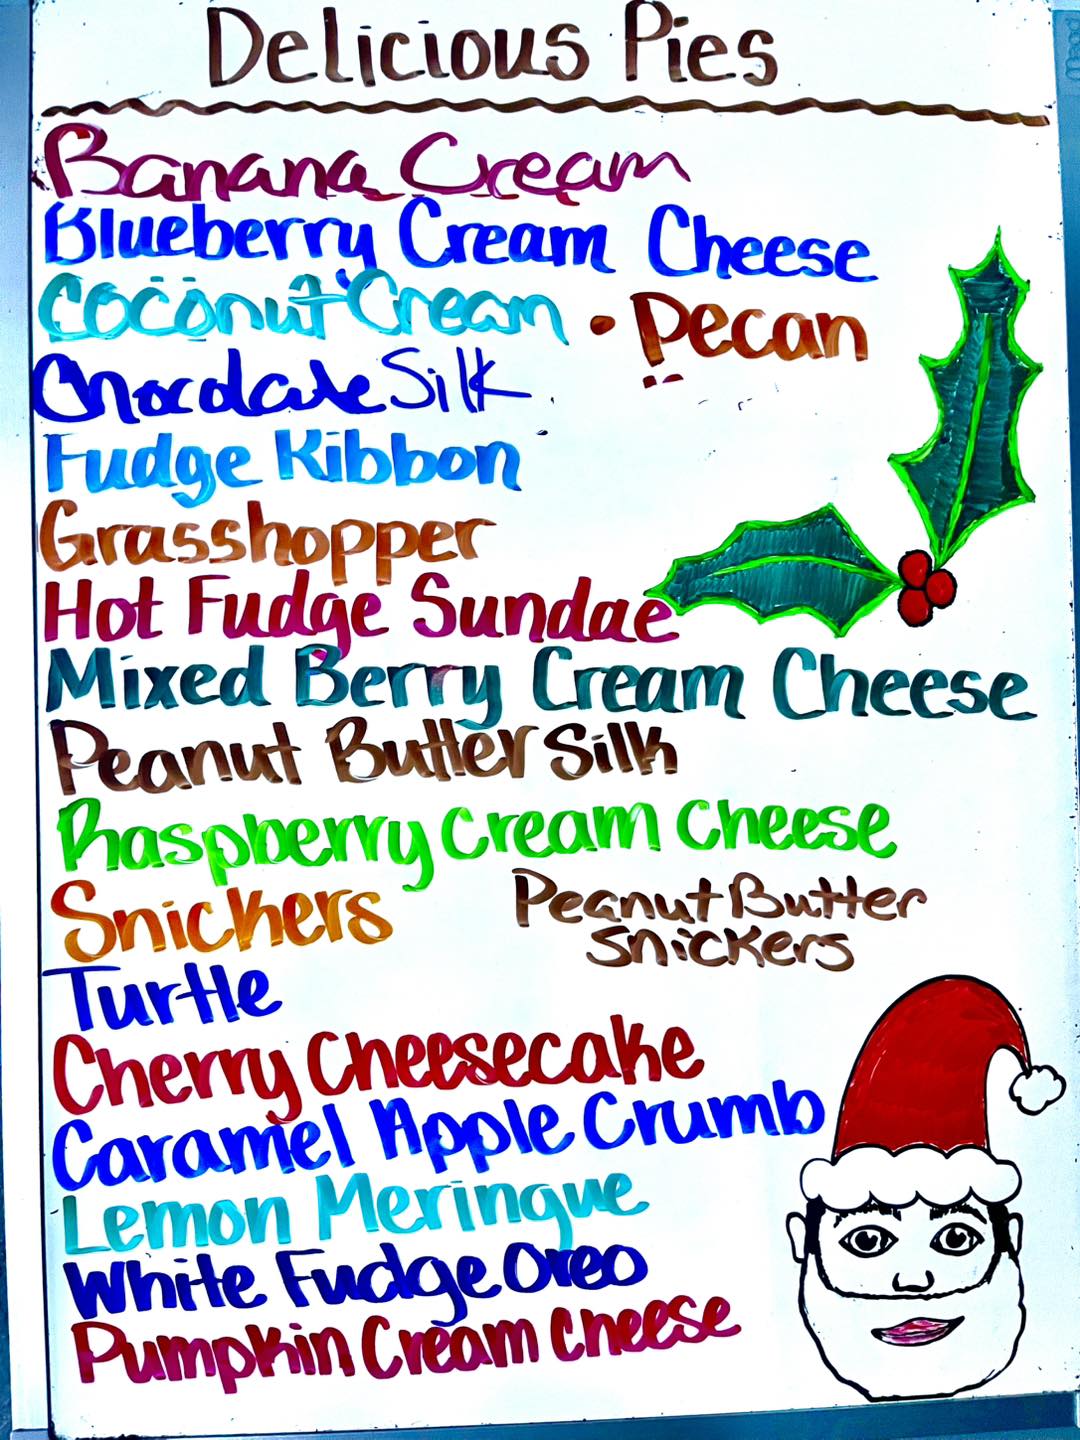 Delicious Pies
Banana Cream
Blueberry Cream Cheese
Coconut Cream • Pecan
Chocolate Silk
Fudge Ribbon
Grasshopper
Hot Fudge Sundae
Mixed Berry Cream Cheese
Peanut Butter Silk
Raspberry Cream Cheese
Snickers
Peanut Butter
Snickers
Turtle
Cherry Cheesecake
Caramel Apple Crumb
Lemon Meringue
White Fudge Oreo
Pumpkin Cream Cheese